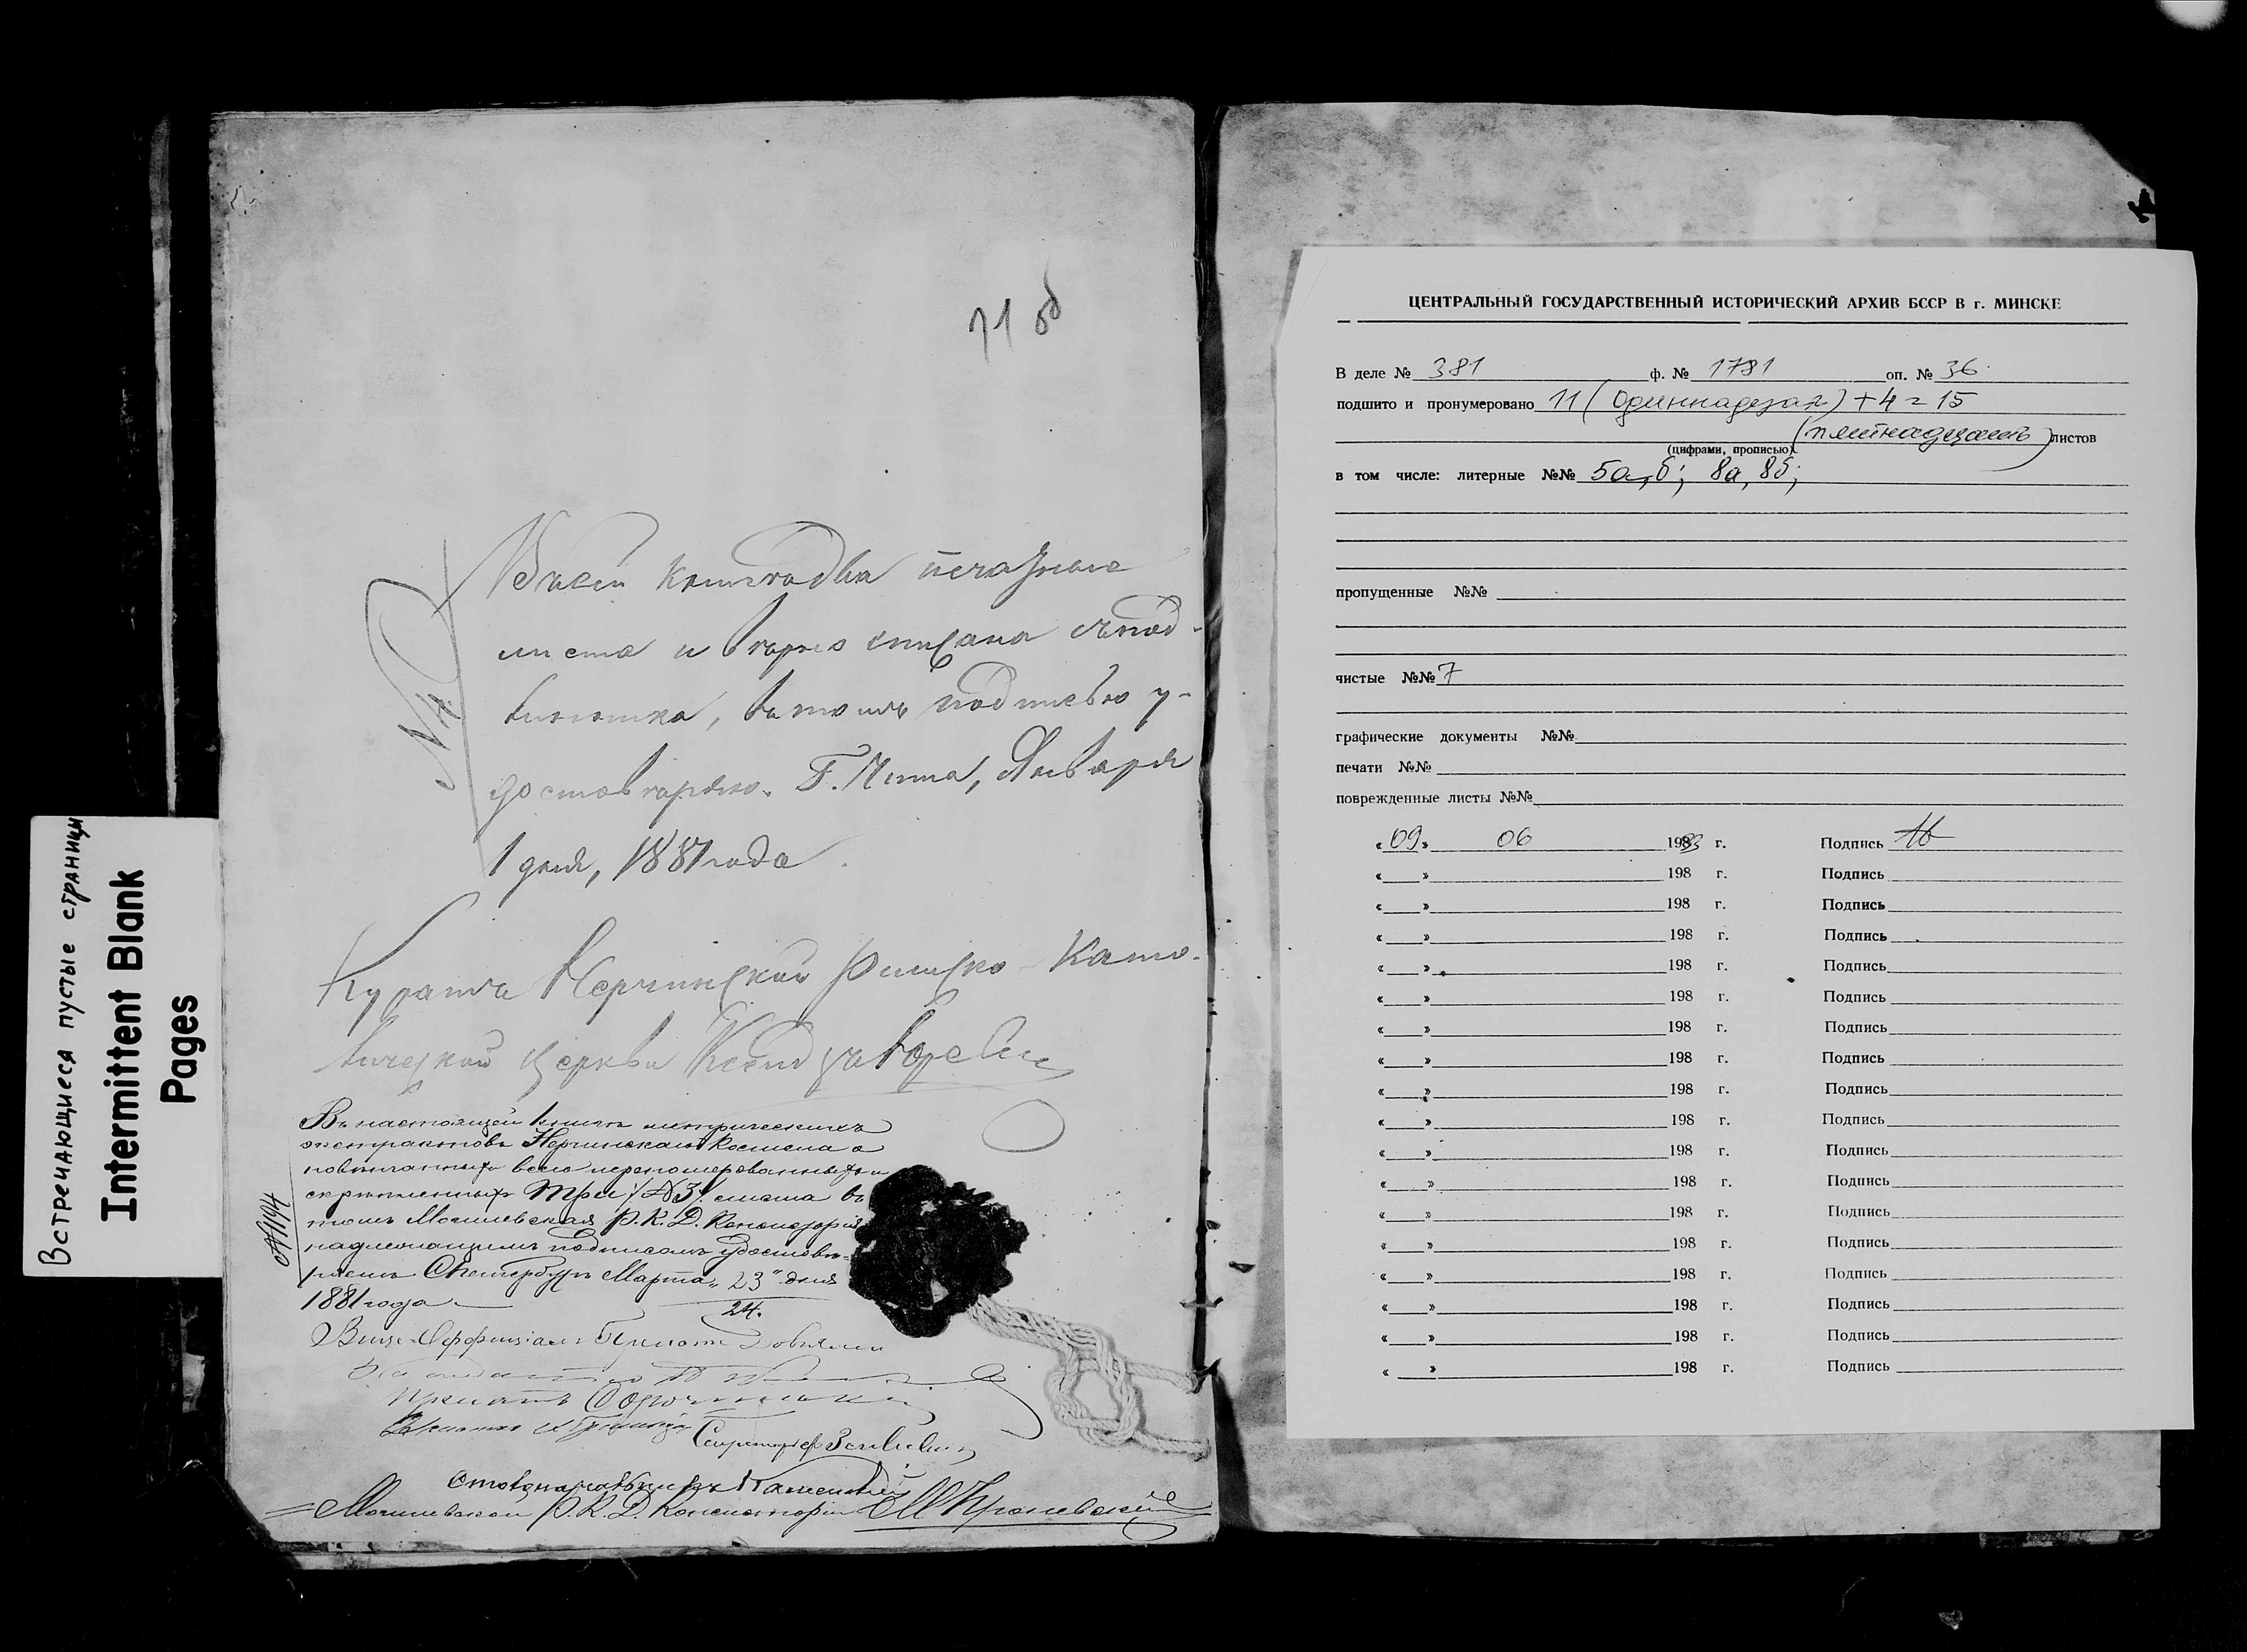 Встречающиеся пустые страницы
Intermittent Blank
Pages
11 об
Въ сей книге два печатные
листа и верно списана съ под-
линника, въ томъ подписью у-
достоверяю. Г. Чита, Января
1 дня, 1881 года
Куратъ Нерчинской Римско-Като-
лической церкви Ксендзъ
Въ настоящей книгѣ метрическихъ
экстрактовъ Нерчинскаго Костела о
повѣнчанныхъ всего перенумерованныхъ и
скрѣпленныхъ три /№3/ листа въ
томъ Могилевская Р. К. Д. Консисторія
надлежащимъ подписомъ удостовѣ-
ряетъ С Петербургъ Марта „23" дня
1881 года
24.
Вице-Оффиціалъ Прелатъ
Прелатъ
Секретарь
Столоначальникъ
Могилевской Р. К. Д. Консисторіи
ЦЕНТРАЛЬНЫЙ ГОСУДАРСТВЕННЫЙ ИСТОРИЧЕСКИЙ АРХИВ БССР В г. МИНСКЕ
В деле № 381 ф. № 1781 оп. № 36
подшито и пронумеровано 11 (одиннадцать) + 4 = 15
(пятнадцать) листов
(цифрами, прописью)
в том числе: литерные №№ 5а, б; 8а, 8б;
пропущенные №№
чистые №№ 7
графические документы №№
печати №№
поврежденные листы №№
« 09 » 06 1983 г. Подпись
« » 198 г. Подпись
« » 198 г. Подпись
« » 198 г. Подпись
« » 198 г. Подпись
« » 198 г. Подпись
« » 198 г. Подпись
« » 198 г. Подпись
« » 198 г. Подпись
« » 198 г. Подпись
« » 198 г. Подпись
« » 198 г. Подпись
« » 198 г. Подпись
« » 198 г. Подпись
« » 198 г. Подпись
« » 198 г. Подпись
« » 198 г. Подпись
« » 198 г. Подпись